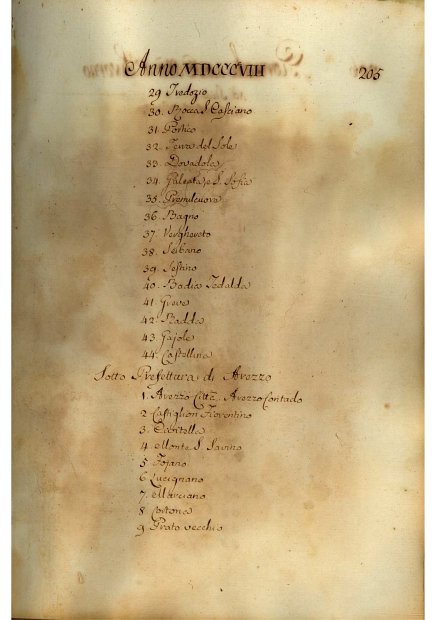 Anno MDCCCVIII 205
29 Tredozio
30. Rocca S. Casciano
31. Portico
32. Terra del Sole
33. Dovadola
34. Galeata, e S. Sofia
35. Premilcuore
36. Bagno
37. Verghereto
38. Sorbano
39. Sestino
40. Badia Tedalda
41. Greve
42. Radda
43. Gajole
44. Castellina
Sotto Prefettura di Arezzo
1. Arezzo Città, Arezzo Contado
2 Castiglion Fiorentino
3.
4. Monte S. Savino
5 Fojano
6 Lucignano
7. Marciano
8 Cortona
9 Prato vecchio